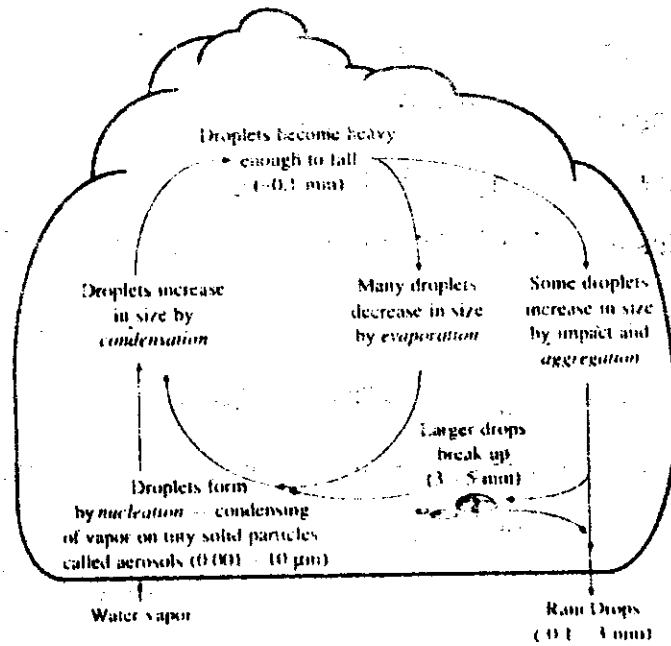 Droplets become heavy
enough to fall
(~0.1 mm)
Droplets increase
in size by
condensation
Many droplets
decrease in size
by evaporation
Some droplets
increase in size
by impact and
aggregation
Larger drops
break up
(3 – 5 mm)
Droplets form
by nucleation – condensing
of vapor on tiny solid particles
called aerosols (0.001 – 10 µm)
Water vapor
Rain Drops
(0.1 – 3 mm)